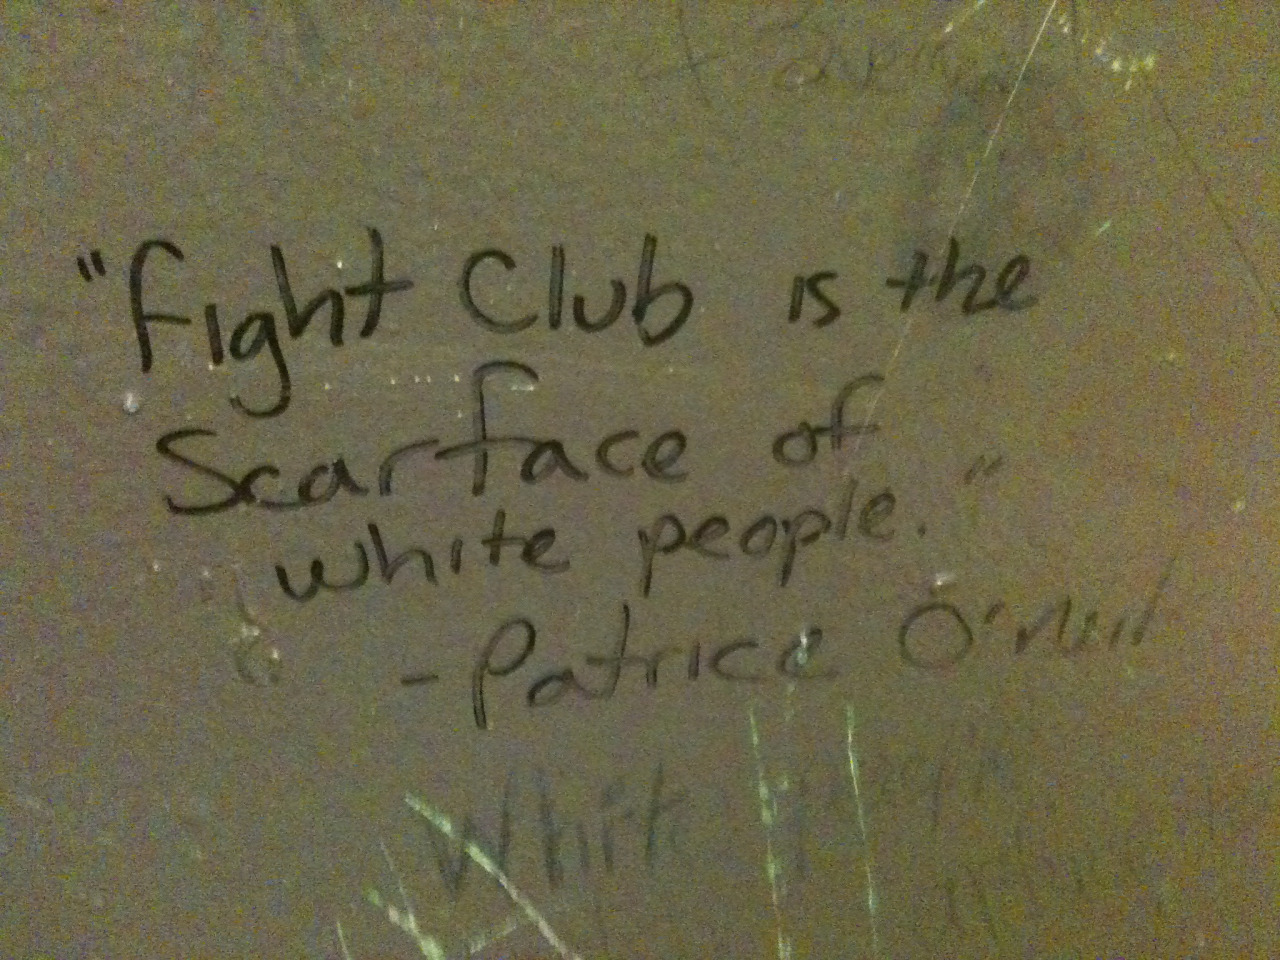 "Fight Club is the
Scarface of
white people."
- Patrice O'Neil
White